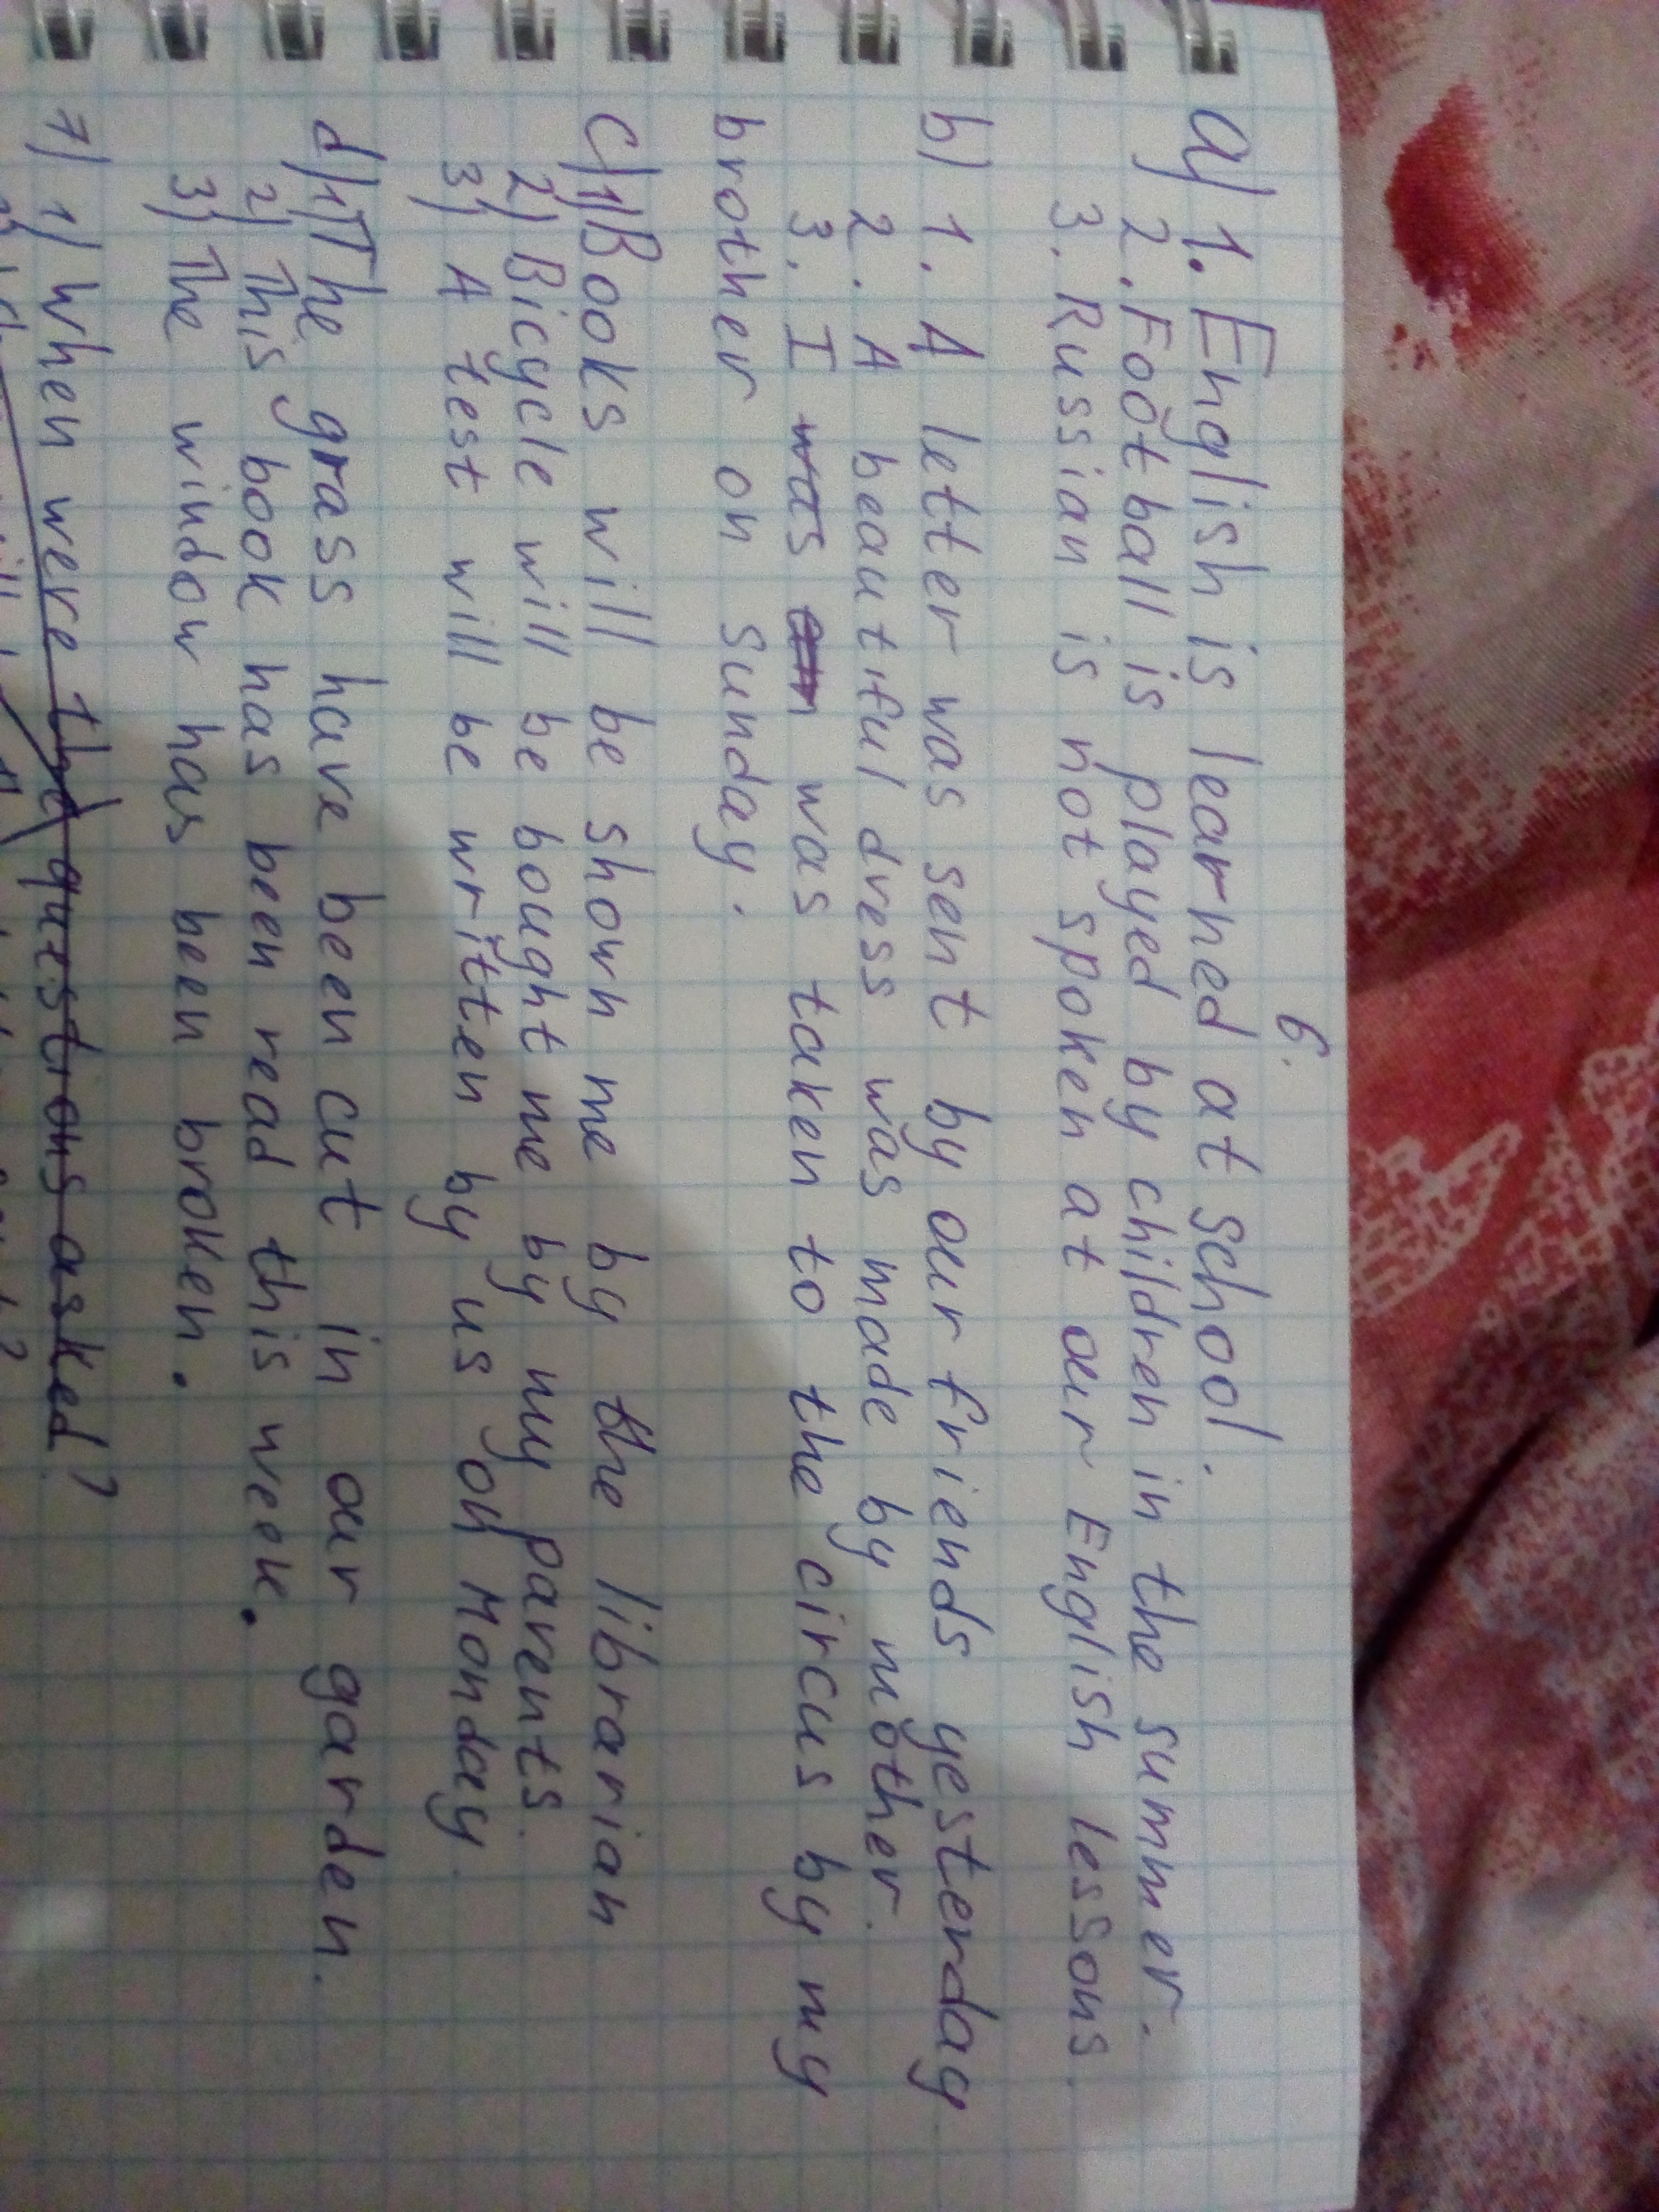 6.
a) 1. English is learned at school.
2. Football is played by children in the summer.
3. Russian is not spoken at our English lessons.
b) 1. A letter was sent by our friends yesterday
2. A beautiful dress was made by mother.
3. I was am was taken to the circus by my
brother on Sunday.
c) 1) Books will be shown me by the librarian
2) Bicycle will be bought me by my parents.
3) A test will be written by us on Monday.
d) 1) The grass have been cut in our garden.
2) This book has been read this week.
3) The window has been broken.
7) 1) When were the questions asked?